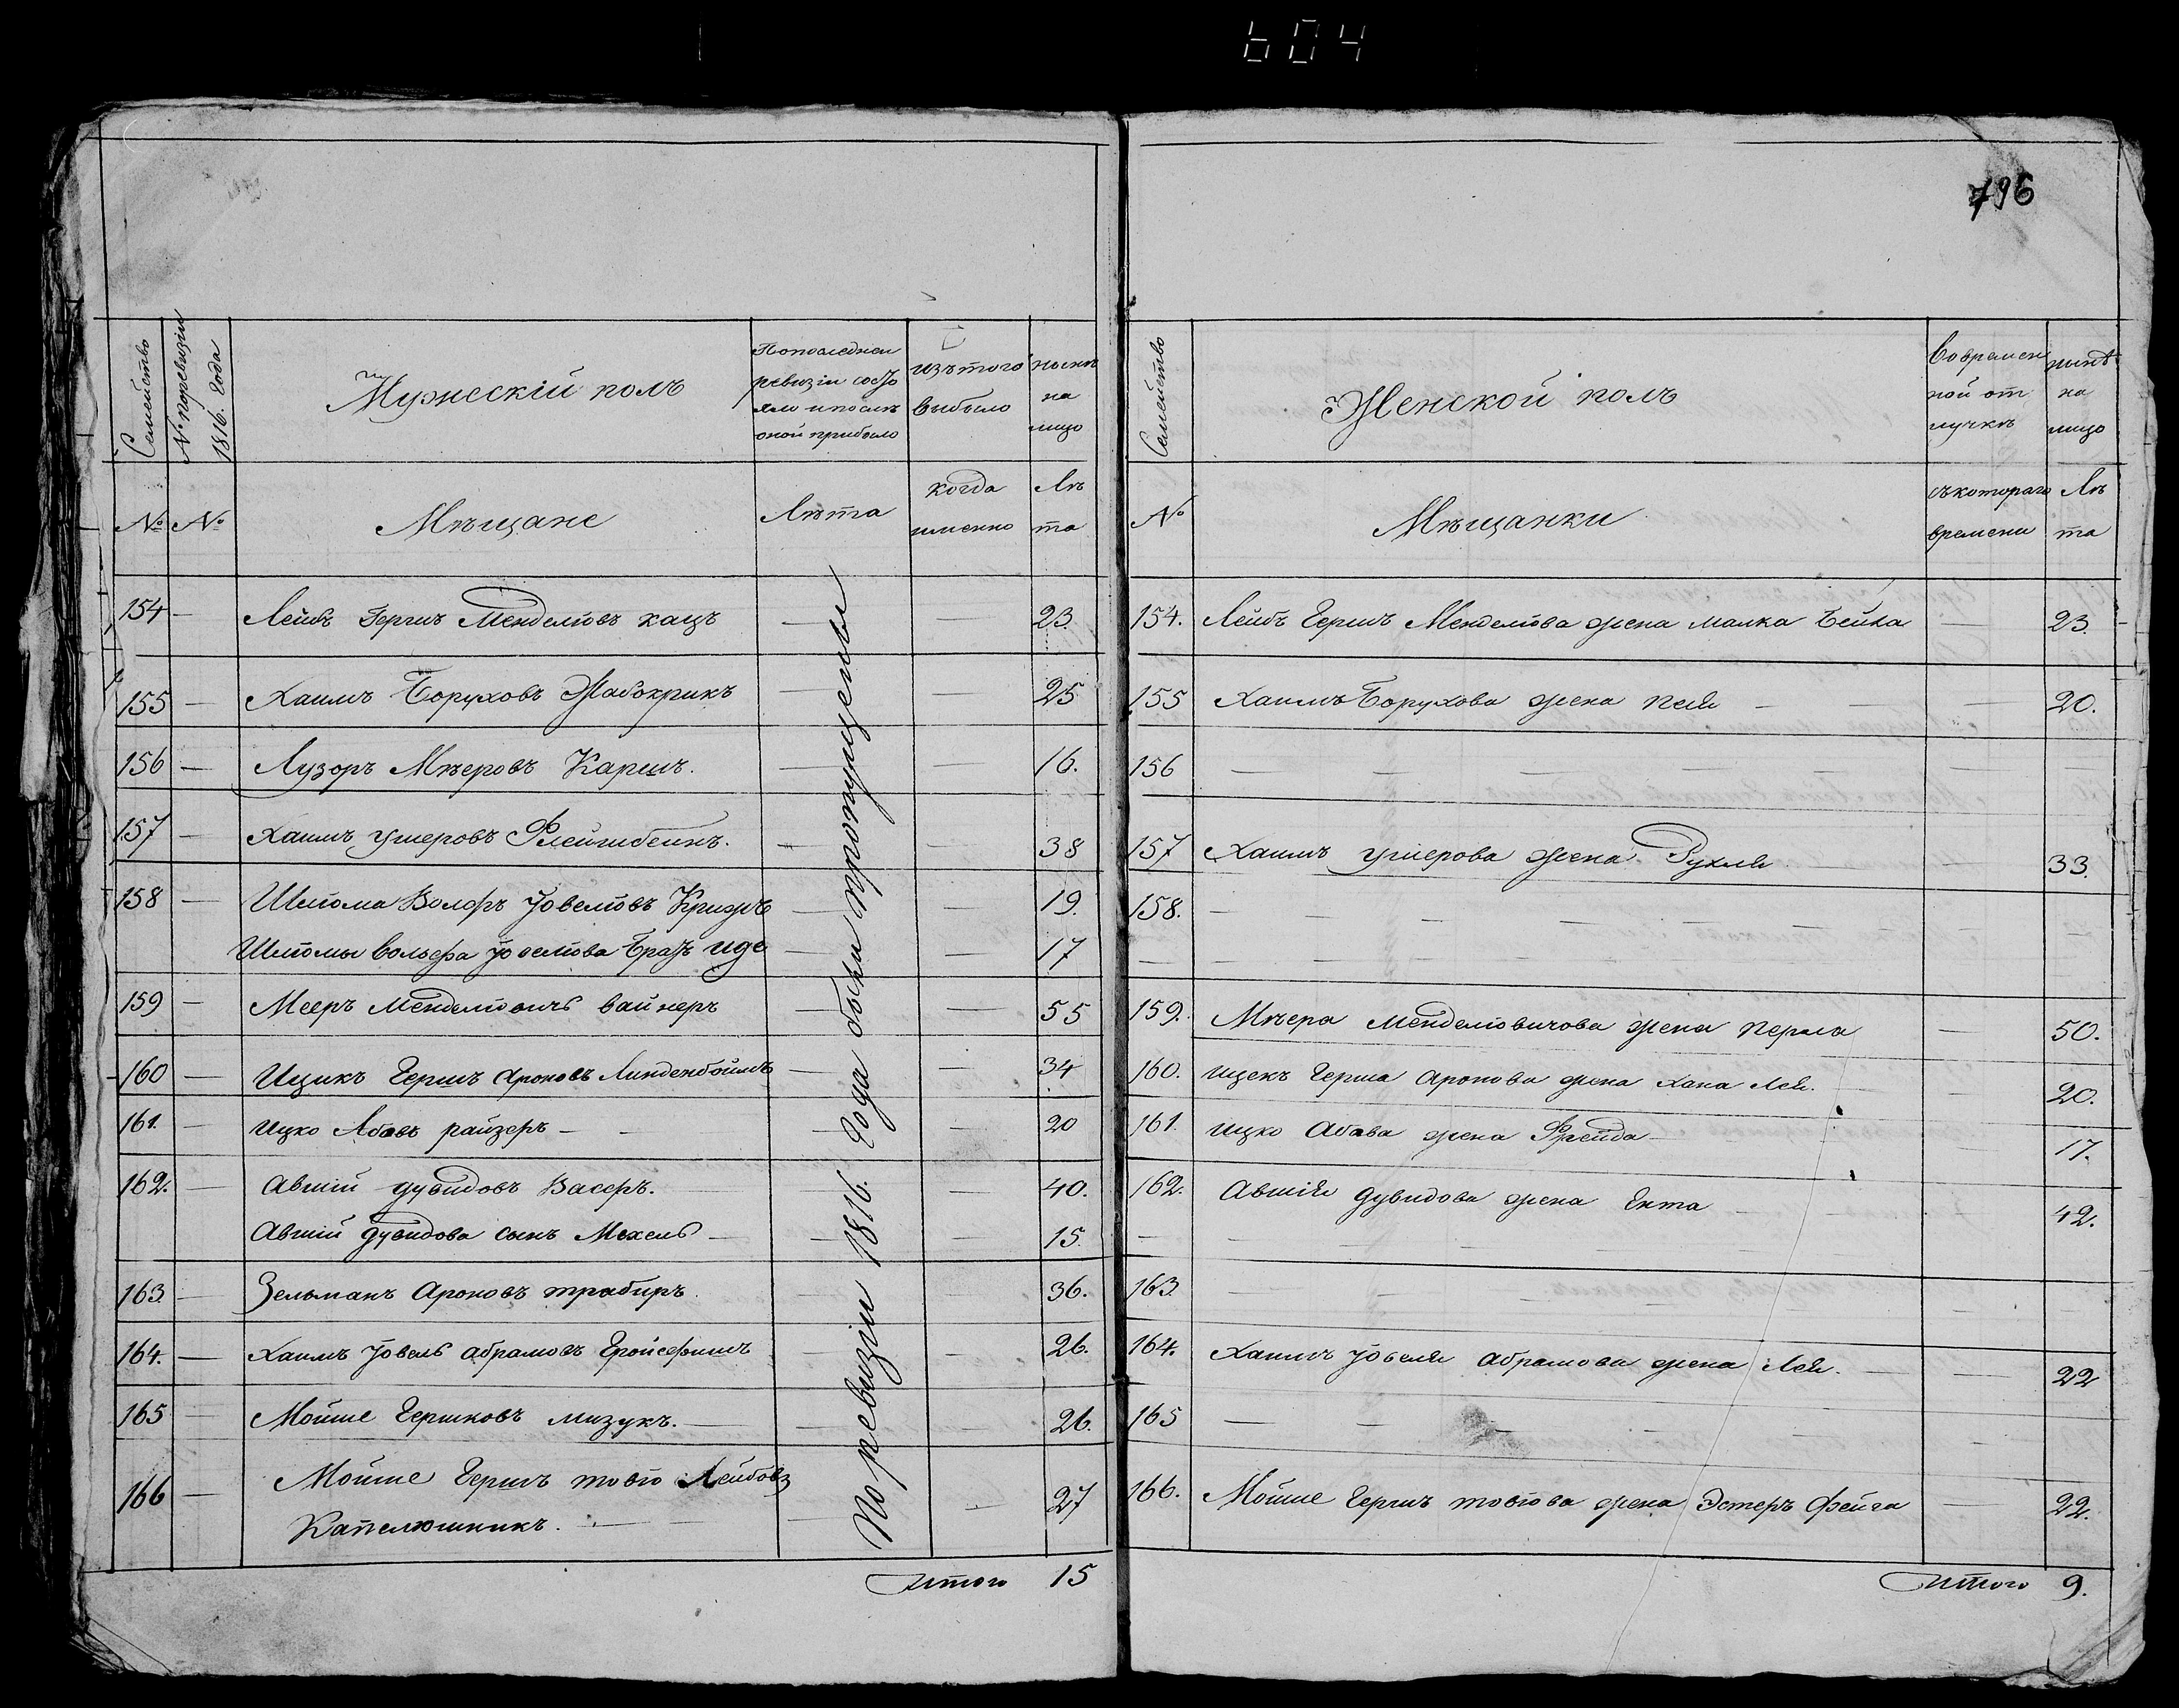 604
796
Семейство
№ поревизіи 1816. Года
Мужескій полъ
Попоследнеи ревизіи состо яло ипослѣ оной прибыло
изътого выбыло
нынѣ на лицо
№
№
Мѣщане
Лѣта
когда именно
Лѣ та
154 — Лейбъ Гершъ Менделіовъ кацъ — — 23.
155 — Хаимъ Боруховъ Жабокрикъ — — 25
156 — Лузоръ Мѣеровъ Каршъ. — — 16.
157 — Хаимъ Ушеровъ Флейшбеинъ. — — 38
158 — Шліома Волфъ Іовеліовъ — — 19.
Шліомы Вольфа Іовеліова Братъ иде — — 17
159 — Мееръ Менделіовичъ вайнеръ — — 55
160 — Ицикъ Гершъ Ароновъ Линденбоймъ — — 34
161. — ицко Абавъ райзеръ — — — 20
162. — Авшій дувидовъ Васеръ. — — 40.
Авшій дувидова сынъ Мехель — — — 15.
163. — Зельманъ Ароновъ трабиръ. — — 36.
164. — Хаимъ Іовель абрамовъ — — 26.
165 — Мойше Гершковъ мизукъ. — — — 26.
166 — Мойше Гершъ товіо Лейбовъ
Капелюшникъ. — — — 27
По ревизіи 1816. Года были пропущены
Итого 15
Семейство
Женской полъ
Вовремен ной от лучкѣ
нынѣ на лицо
№
Мѣщанки
съкотораго времени
Лѣ та
154. Лейбъ Герша Менделіова жена малка бейла — 23.
155 Хаимъ Борухова жена песя — — 20.
156 — — — — —
157 Хаимъ Ушерова жена Рухля — 33.
158. — — — — —
— — — — —
159. Мѣера Менделіовичова жена перла — 50.
160. ицекъ Герша Аронова жена хана лея. — 20.
161. ицко Абава жена Фрейда — — 17.
162. Авшія дувидова жена Ента — — 42.
— — — — —
163. — — — — —
164. Хаимъ Іовеля абрамова жена Лея. — — 22
165 — — — — —
166. Мойше Гершъ товіова жена Эстеръ фейга — 22.
Итого 9.